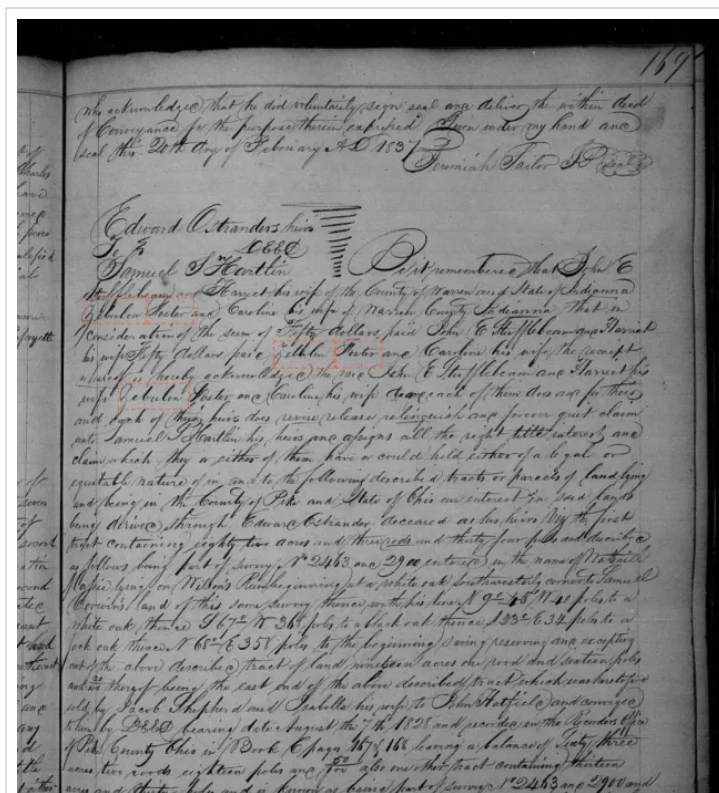 169
who acknowledged that he did voluntarily sign seal and deliver the within deed
of Conveyance for the purpose therein expressed Given under my hand and
seal this 20th day of February AD 1837
Jeremiah Tailor JP Seal
Edward Ostranders heirs
To DEED
Samuel S Hartlin
Be it remembered that John E
Stufflebeam and Harriet his wife of the County of Warren and State of Indianna
Zebulon Foster and Caroline his wife of Warren County Indianna that in
consideration of the sum of Fifty dollars paid John E Stufflebeam and Harriet
his wife Fifty dollars paid Zebulon Foster and Caroline his wife the receipt
whereof is hereby acknowledged the said John E Stufflebeam and Harriet his
wife Zebulon Foster and Caroline his wife and each of them does and for them
and each of their heirs does remise release relinquish and forever quit claim
unto Samuel S Hartlin his heirs and assigns all the right title interest and
claim which they or either of them have or could hold either of a legal or
equitable nature of in and to the following described tracts or parcels of land lying
and being in the County of Pike and State of Ohio our interest in said lands
being derived through Edward Ostrander deceased as his heirs Viz the first
tract containing eighty two acres and three rods and thirty four poles and described
as follows being part of survey No 2463 and 2900 entered in the name of
lying on Run beginning at a white oak southwesterly corner to Samuel
land of this same survey thence with his line N 9° 48 W 40 poles to a
white oak thence S 67° W 368 poles to a black oak thence S 33° E 34 poles to a
oak thence N 68° E 358 poles to the beginning saving reserving and excepting
out of the above described tract of land nineteen acres one rood and sixteen poles
and thereof being the east end of the above described tract which was heretofore
sold by Jacob Shepherd and Isabella his wife to John Hatfield and conveyed
to him by DEED bearing date August the 7th 1828 and recorded in the Recorders Office
of Pike County Ohio in Book C page 167 & 168 leaving a balance of Sixty three
acres two roods eighteen poles and also one other tract containing thirteen
acres and thirty poles and is known as being part of survey No 2463 and 2900 and